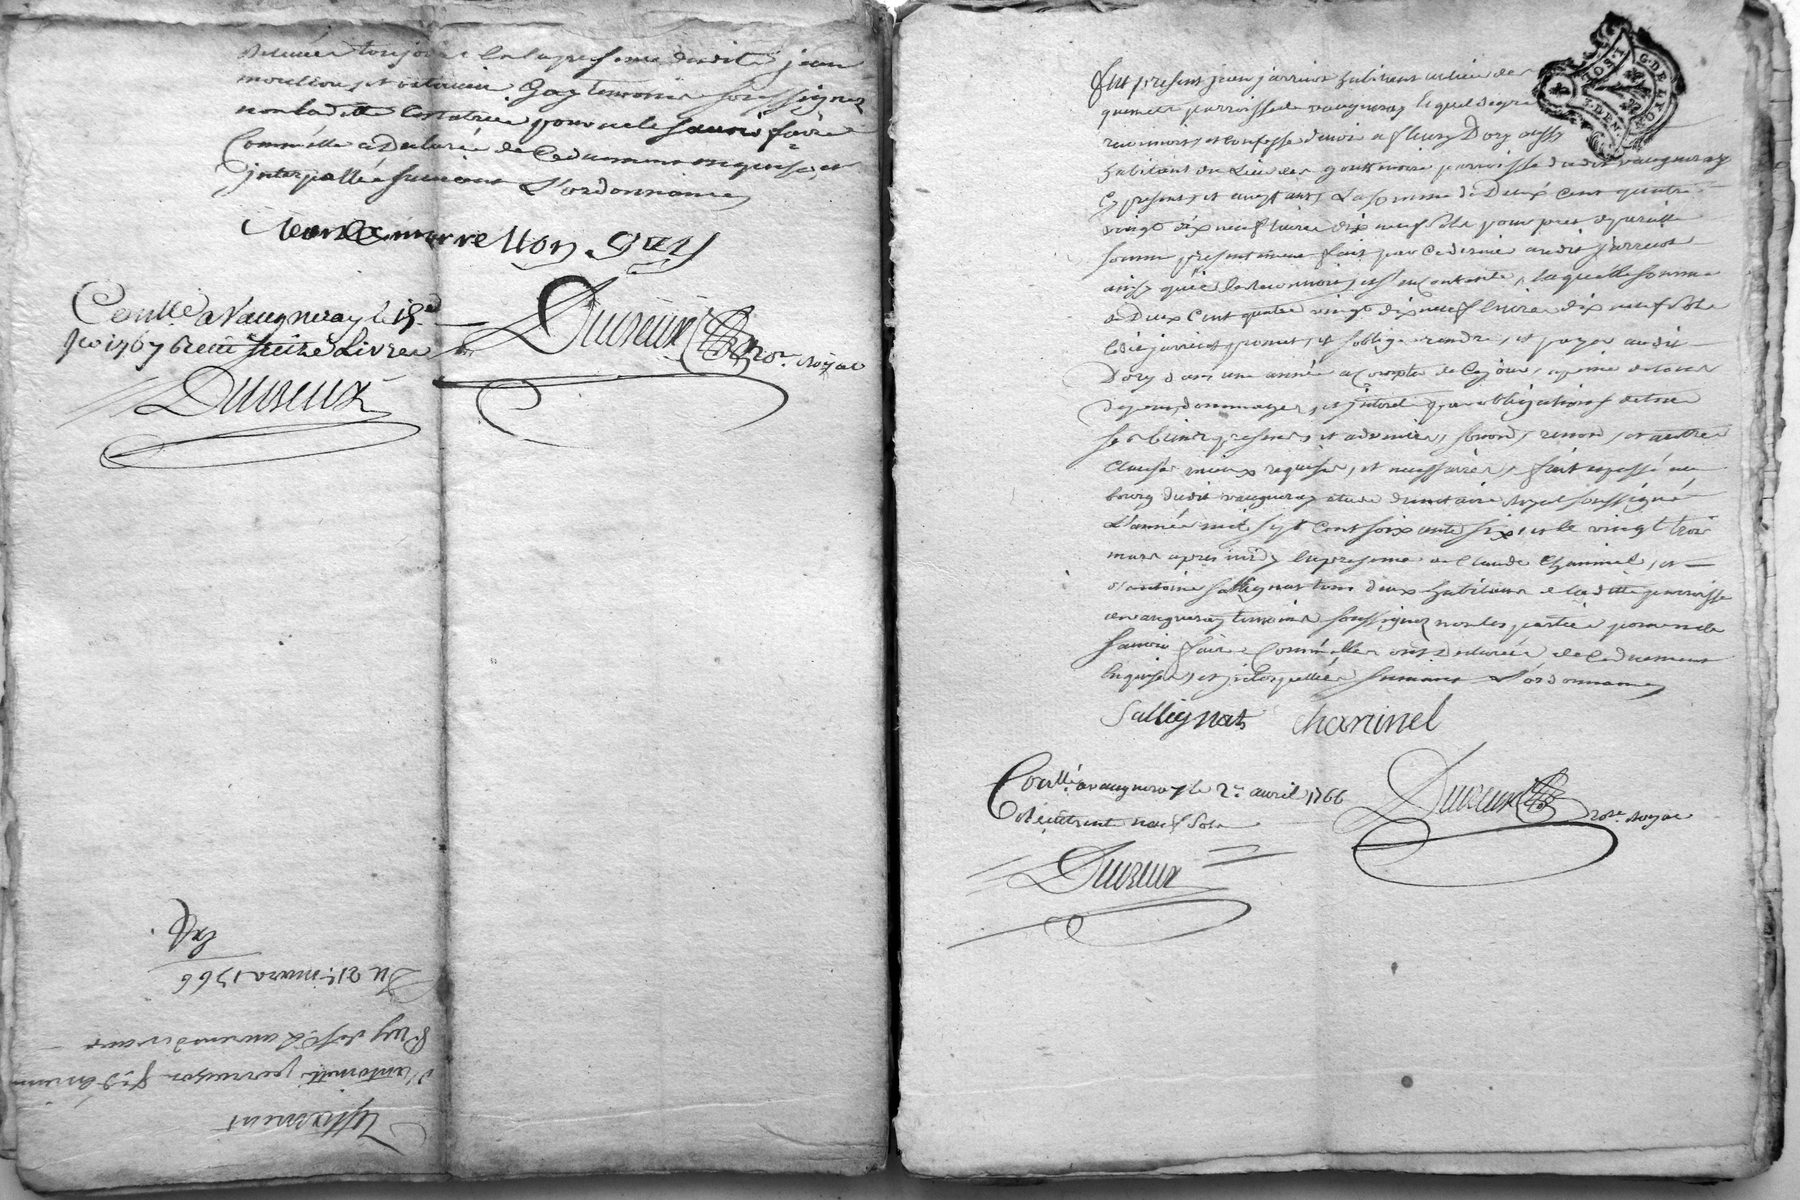 jean
moullion, et                 Gay temoins soussignez
non ladite testatrice pour ne le savoir faire
Comme elle a Declaré de ce duement enquise, et
interpellée suivant L'ordonnance
mollion gay
Conllé a Vaugneray le 15e
1767 Reçu seize Livres
Duvieux nore. Royal
Duvieux
Du 21e. mars 1766
Puy de St. Laurens de vaux
d'antoinette
Testament
G. DE LYON
1. SOL
3. DEN.
Fut present jean jarricot habitant au lieu de
parroisse de vaugneray lequel de gré
reconnoit, et confesse devoir a fleury Dory aussy
habitant du Lieu des parroisse dudit vaugneray
Cy present, et acceptant, La somme de Deux Cent quatre
vingt dix neuf livres dix neuf sols pour pret de pareille
somme presentement fait par ce dernier audit jarricot
ainsy qu'il le reconnoit, et s'en contente, laquelle somme
de Deux Cent quatre vingt dix neuf livres dix neuf sols
ledit jarricot promet, et s'oblige rendre, et payer audit
Dory dans une année a Compter de Ce jour, a peine de tous
depens, dommages, et interet par obligation de tous
ses biens presents, et advenir, soumod, renond, et autres
clauses mieux requises, et necessaires, fait et passé au
bourg dudit vaugneray etude du notaire royal soussigné
L'année mil sept cent soixante six, et le vingt trois
mars apres midy En presence de Claude Chaninel, et
d'antoine Sallignat tous deux habitans de ladite parroisse
de vaugneray temoins soussignez non les parties pour ne le
savoir faire Comme elles ont Declarée de ce duement
Enquises, et interpellées suivant L'ordonnance
Sallignat Chaninel
Conllé a vaugneray le 2e avril 1766
Reçu trente neuf sols
Duvieux nore. Royal
Duvieux